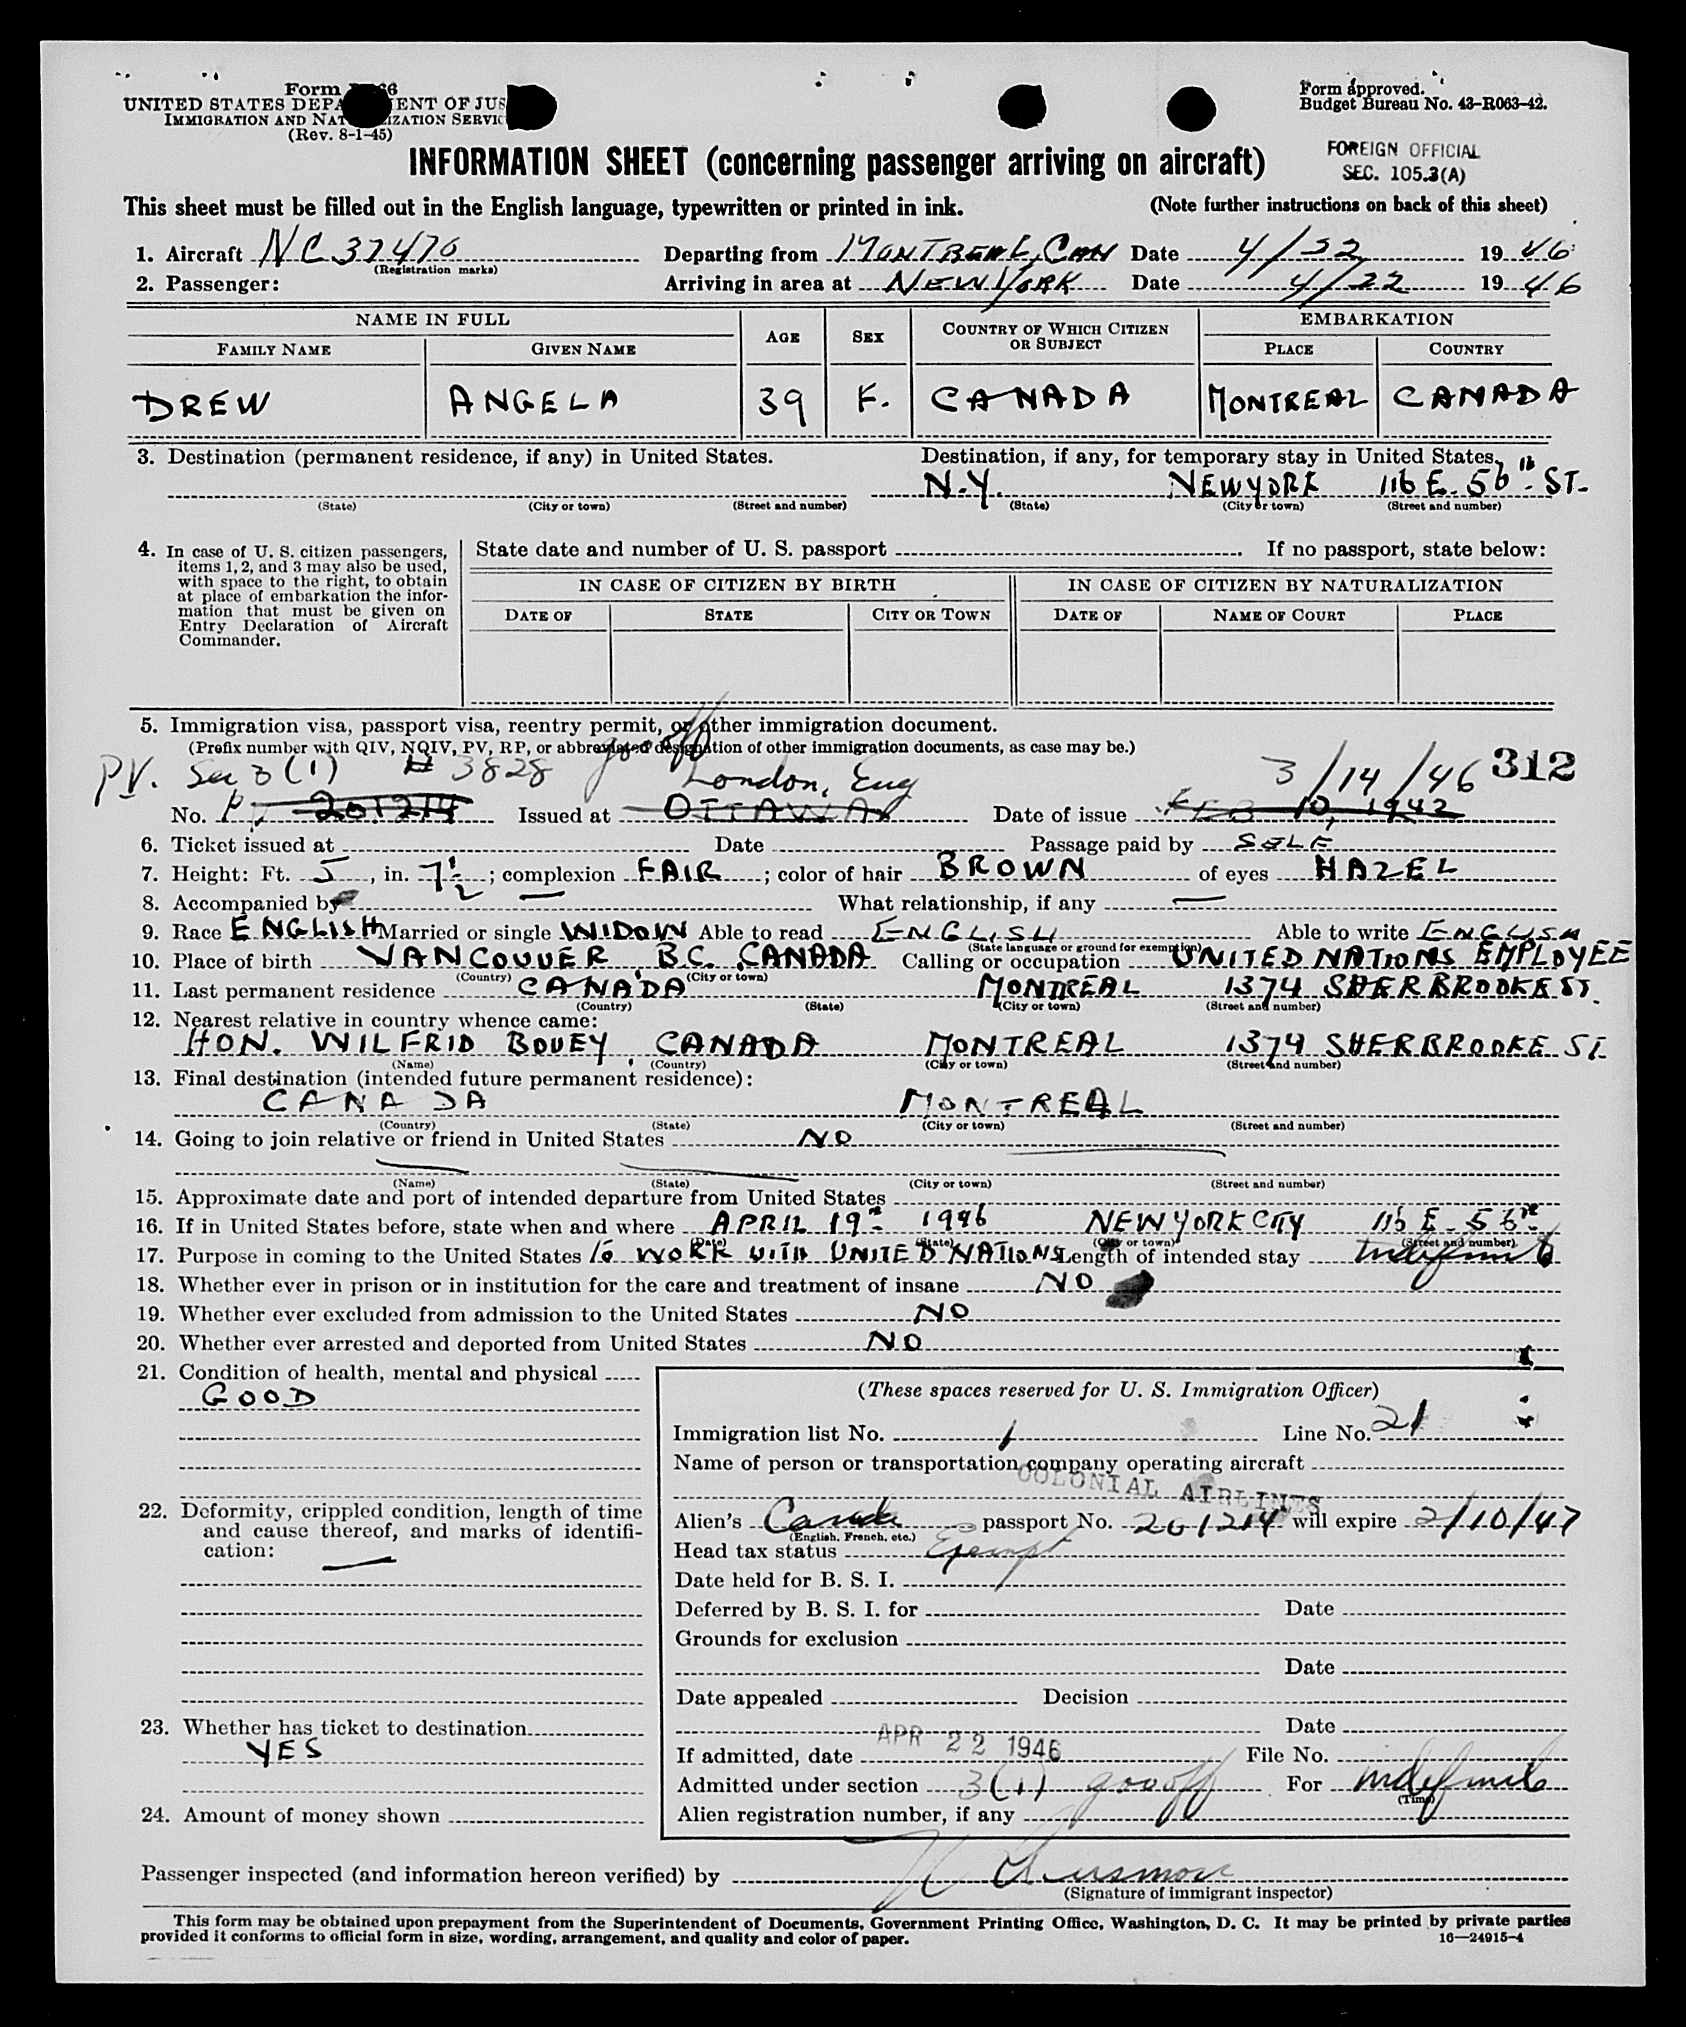 Form 66
UNITED STATES DEPA ENT OF JUS
IMMIGRATION AND NAT IZATION SERVIC
(Rev. 8-1-45)
Form approved.
Budget Bureau No. 43-R063-42.
FOREIGN OFFICIAL
SEC. 105.3(A)
INFORMATION SHEET (concerning passenger arriving on aircraft)
This sheet must be filled out in the English language, typewritten or printed in ink. (Note further instructions on back of this sheet)
1. Aircraft NC 37470 Departing from MONTREAL, CAN Date 4/22 1946
(Registration marks)
2. Passenger: Arriving in area at NEW YORK Date 4/22 1946
NAME IN FULL AGE SEX COUNTRY OF WHICH CITIZEN OR SUBJECT EMBARKATION
FAMILY NAME GIVEN NAME PLACE COUNTRY
DREW ANGELA 39 F. CANADA MONTREAL CANADA
3. Destination (permanent residence, if any) in United States. Destination, if any, for temporary stay in United States.
N.Y. NEW YORK 116 E. 56th ST.
(State) (City or town) (Street and number) (State) (City or town) (Street and number)
4. In case of U. S. citizen passengers, items 1, 2, and 3 may also be used, with space to the right, to obtain at place of embarkation the information that must be given on Entry Declaration of Aircraft Commander.
State date and number of U. S. passport . If no passport, state below:
IN CASE OF CITIZEN BY BIRTH IN CASE OF CITIZEN BY NATURALIZATION
DATE OF STATE CITY OR TOWN DATE OF NAME OF COURT PLACE
5. Immigration visa, passport visa, reentry permit, or other immigration document.
(Prefix number with QIV, NQIV, PV, RP, or abbreviated designation of other immigration documents, as case may be.)
PV. Sec 3 (1) # 3828 gov off London, Eng 3/14/46 312
No. PV 201214 Issued at OTTAWA Date of issue FEB 10, 1942
6. Ticket issued at Date Passage paid by SELF
7. Height: Ft. 5, in. 7½; complexion FAIR; color of hair BROWN of eyes HAZEL
8. Accompanied by — What relationship, if any —
9. Race ENGLISH Married or single WIDOW Able to read ENGLISH Able to write ENGLISH
(State language or ground for exemption)
10. Place of birth VANCOUVER, B.C. CANADA Calling or occupation UNITED NATIONS EMPLOYEE
(Country) (City or town)
11. Last permanent residence CANADA MONTREAL 1374 SHERBROOKE ST.
(Country) (State) (City or town) (Street and number)
12. Nearest relative in country whence came:
HON. WILFRID BOVEY, CANADA MONTREAL 1374 SHERBROOKE ST.
(Name) (Country) (City or town) (Street and number)
13. Final destination (intended future permanent residence):
CANADA MONTREAL
(Country) (State) (City or town) (Street and number)
14. Going to join relative or friend in United States NO
(Name) (State) (City or town) (Street and number)
15. Approximate date and port of intended departure from United States
16. If in United States before, state when and where APRIL 19th 1946 NEW YORK CITY 116 E. 56th
(Date) (State) (City or town) (Street and number)
17. Purpose in coming to the United States TO WORK WITH UNITED NATIONS Length of intended stay Indefinite
18. Whether ever in prison or in institution for the care and treatment of insane NO
19. Whether ever excluded from admission to the United States NO
20. Whether ever arrested and deported from United States NO
21. Condition of health, mental and physical
GOOD
22. Deformity, crippled condition, length of time and cause thereof, and marks of identification: —
23. Whether has ticket to destination
YES
24. Amount of money shown
(These spaces reserved for U. S. Immigration Officer)
Immigration list No. 1 Line No. 21
Name of person or transportation company operating aircraft
COLONIAL AIRLINES
Alien's Canada passport No. 201214 will expire 2/10/47
(English, French, etc.)
Head tax status Exempt
Date held for B. S. I.
Deferred by B. S. I. for Date
Grounds for exclusion
Date
Date appealed Decision
Date
If admitted, date APR 22 1946 File No.
Admitted under section 3(1) gov off For indefinite
(Time)
Alien registration number, if any
Passenger inspected (and information hereon verified) by
(Signature of immigrant inspector)
This form may be obtained upon prepayment from the Superintendent of Documents, Government Printing Office, Washington, D. C. It may be printed by private parties
provided it conforms to official form in size, wording, arrangement, and quality and color of paper. 16—24915-4